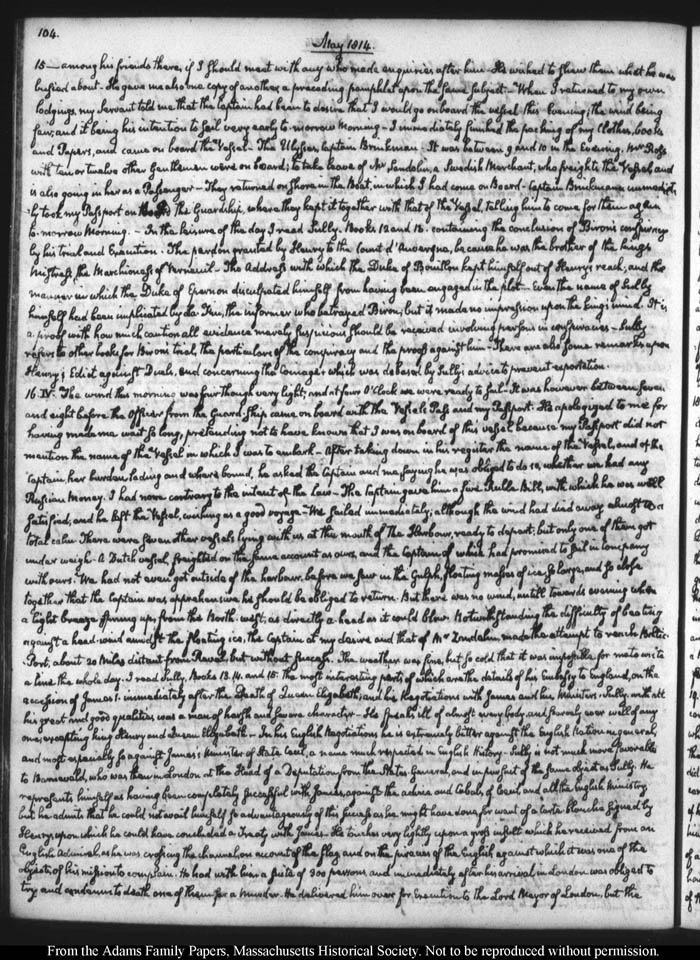 104.
May 1814.
15 — among his friends there, if I should meet with any who made enquiries after him — He wished to shew them what he was
busied about. He gave me also one copy of another, a preceding pamphlet upon the same subject — When I returned to my own
lodgings, my servant told me that the Captain had been to desire that I would go on board the vessel this Evening; the wind being
fair, and it being his intention to sail very early to-morrow Morning — I immediately finished the packing of my Clothes, books
and Papers, and came on board the Vessel — The Ulysses, Captain Brinkman — It was between 9 and 10 in the Evening. Mr Ross
with ten or twelve other Gentlemen were on board; to take leave of Mr a Swedish Merchant, who freights the Vessel, and
is also going in her as a Passenger — They returned on shore in the Boat, in which I had come on Board — Captain Brinkmann immediate-
ly took my Passport on the Guardship, where they kept it together with that of the Vessel, telling him to come for them again
to-morrow Morning. — In the leisure of the day I read Sully. Books 12 and 13. containing the conclusion of Biron's conspiracy
by his trial and Execution. The pardon granted by Henry to the Count d'Auvergne, because he was the brother of the king's
Mistress, the Marchioness of Verneuil — The Address with which the Duke of Bouillon kept himself out of Henry's reach, and the
manner in which the Duke of Epernon disculpated himself from having been engaged in the plot — Even the name of Sully
himself had been implicated by La Fin, the informer who betrayed Biron, but it made no impression upon the King's mind. It is
a proof with how much caution all evidence merely suspicious should be received involving persons in conspiracies — Sully
refers to other books for Biron's trial, the particulars of the conspiracy and the proofs against him — There are also some remarks upon
Henry's Edict against Duels, and concerning the Coinage, which was debased by Sully's advice to prevent exportation.
16. IV. The wind this morning was fair though very light; and at four O'Clock we were ready to sail — It was however between seven
and eight before the Officer from the Guard Ship came on board with the Vessel's Pass and my Passport. He apologized to me for
having made me wait so long, pretending not to have known that I was on board of this vessel because my Passport did not
mention the name of the Vessel in which I was to embark — After taking down in his register the name of the Vessel, and of the
Captain, her burden, lading and where bound, he asked the Captain and me, saying he was obliged to do so, whether we had any
Russian Money. I had none contrary to the intent of the Law — The Captain gave him a five Ruble Bill, with which he was well
satisfied, and he left the Vessel, wishing us a good voyage — We sailed immediately; although the wind had died away almost to a
total calm. There were seven other vessels lying with us at the mouth of the Harbour, ready to depart; but only one of them got
under weigh — A Dutch vessel, freighted on the same account as ours, and the Captain of which had promised to sail in company
with ours. We had not even got outside of the harbour, before we saw in the Gulph, floating masses of ice so large, and so close
together that the Captain was apprehensive he should be obliged to return. But there was no wind, untill towards evening when
a light breeze sprung up, from the North-west, as directly a head as it could blow. Notwithstanding the difficulty of beating
against a head-wind amidst the floating ice, the Captain at my desire and that of Mr made the attempt to reach Baltic-
Port, about 20 Miles distant from Reval, but without success. The weather was fine, but so cold that it was impossible for me to write
a line the whole day. I read Sully, Books 13. 14. and 15. the most interesting parts of which are the details of his Embassy to England, on the
accession of James 1. immediately after the Death of Queen Elizabeth; and his Negotiations with James and his Ministers. Sully with all
his great and good qualities was a man of harsh and severe character — He speaks ill of almost every body, and scarcely ever well of any
one, excepting king Henry and Queen Elizabeth — In his English Negotiations he is extremely bitter against the English Nation in general,
and most especially so against James's Minister of State Cecil, a name much respected in English History — Sully is not much more favourable
to Barneveldt, who was then in London at the Head of a Deputation from the States General, and in pursuit of the same object as Sully. He
represents himself as having been completely successful with James, against the advice and Cabals of Cecil, and all the English Ministry
but he admits that he could not avail himself so advantageously of this success as he might have done, for want of a carte blanche signed by
Henry, upon which he could have concluded a Treaty with James — He touches very lightly upon a gross insult which he received from an
English Admiral, as he was crossing the channel on account of the flag, and on the piracies of the English against which it was one of the
objects of his mission to complain. He had with him a suite of 300 persons, and immediately after his arrival in London was obliged to
try and condemn to death one of them for a Murder. He delivered him over for Execution to the Lord Mayor of London, but the
From the Adams Family Papers, Massachusetts Historical Society. Not to be reproduced without permission.